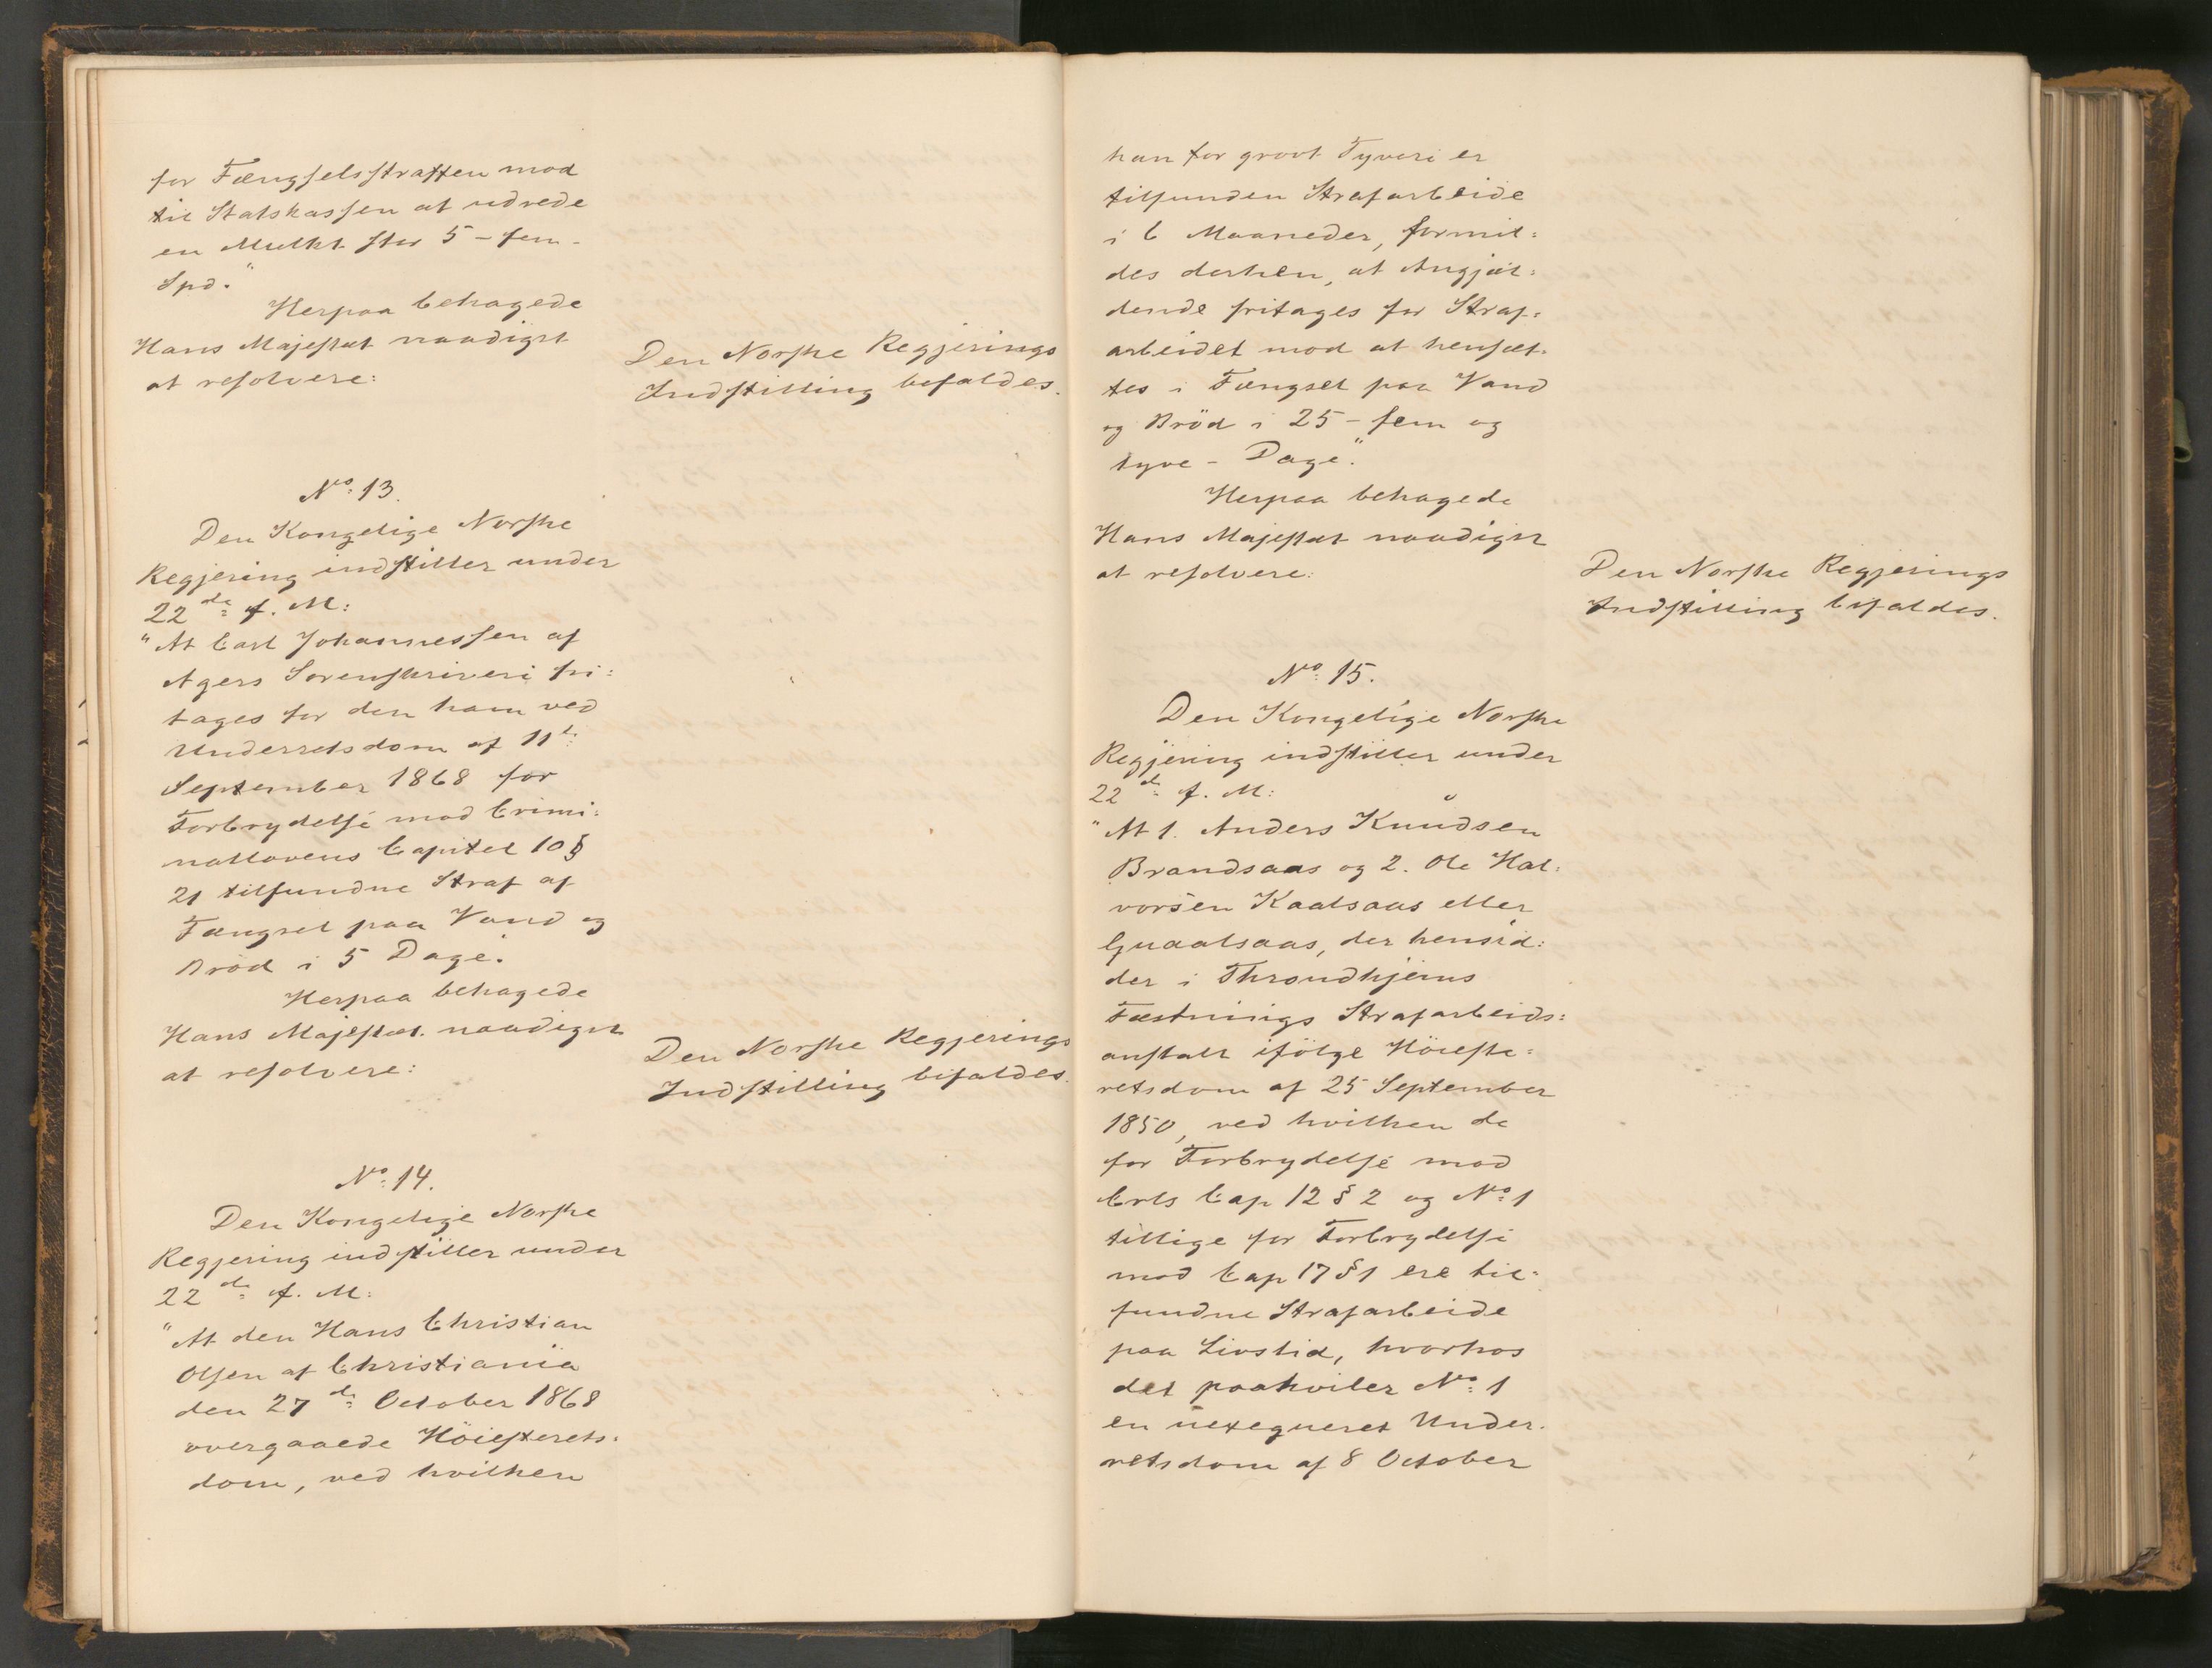 for Fængselsstraffen mod
til Statskassen at udrede
en Mulkt stor 5 - fem -
Spd."
Herpaa behagede
Hans Majestæt naadigst
at resolvere:
Den Norske Regjerings
Indstilling bifaldes.
No. 13.
Den Kongelige Norske
Regjering indstiller under
22de f. M:
"At Carl Johannessen af
Agers Sorenskriveri fri=
tages for den ham ved
Underretsdom af 11te
September 1868 for
Forbrydelse mod Crimi=
nallovens Capitel 10 §
21 tilfundne Straf af
Fængsel paa Vand og
Bröd i 5 Dage."
Herpaa behagede
Hans Majestæt naadigst
at resolvere:
Den Norske Regjerings
Indstilling bifaldes.
No. 14.
Den Kongelige Norske
Regjering indstiller under
22de f. M:
"At den Hans Christian
Olsen af Christiania
den 27de October 1868
overgaaede Höiesterets=
dom, ved hvilken
han for grovt Tyveri er
tilfunden Strafarbeide
i 6 Maaneder, formil=
des derhen, at Angjæl=
dende fritages for Straf=
arbeidet mod at hensæt=
tes i Fængsel paa Vand
og Bröd i 25 - fem og
tyve - Dage."
Herpaa behagede
Hans Majestæt naadigst
at resolvere:
Den Norske Regjerings
Indstilling bifaldes.
No. 15.
Den Kongelige Norske
Regjering indstiller under
22de f. M:
"At 1. Anders Knudsen
Brandsaas og 2. Ole Hal=
vorsen Kaalsaas eller
Gnaalsaas, der hensid=
der i Throndhjems
Fæstnings Strafarbeids=
anstalt ifölge Höieste=
retsdom af 25 September
1850, ved hvilken de
for Forbrydelse mod
Crls Cap 12 § 2 og No. 1
tillige for Forbrydelse
mod Cap 17 § 1 ere til=
fundne Strafarbeide
paa Livstid, hvorhos
det paahviler No. 1
en uexeqveret Under=
retsdom af 8 October